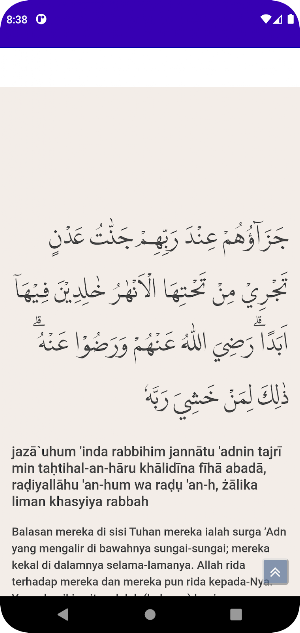 8:38
جَزَاۤؤُهُمْ عِنْدَ رَبِّهِمْ جَنّٰتُ عَدْنٍ
تَجْرِيْ مِنْ تَحْتِهَا الْاَنْهٰرُ خٰلِدِيْنَ فِيْهَآ
اَبَدًا ۗرَضِيَ اللّٰهُ عَنْهُمْ وَرَضُوْا عَنْهُ ۗ
ذٰلِكَ لِمَنْ خَشِيَ رَبَّهٗ
jazā`uhum 'inda rabbihim jannātu 'adnin tajrī
min taḥtihal-an-hāru khālidīna fīhā abadā,
raḍiyallāhu 'an-hum wa raḍụ 'an-h, żālika
liman khasyiya rabbah
Balasan mereka di sisi Tuhan mereka ialah surga 'Adn
yang mengalir di bawahnya sungai-sungai; mereka
kekal di dalamnya selama-lamanya. Allah rida
terhadap mereka dan mereka pun rida kepada-Nya.